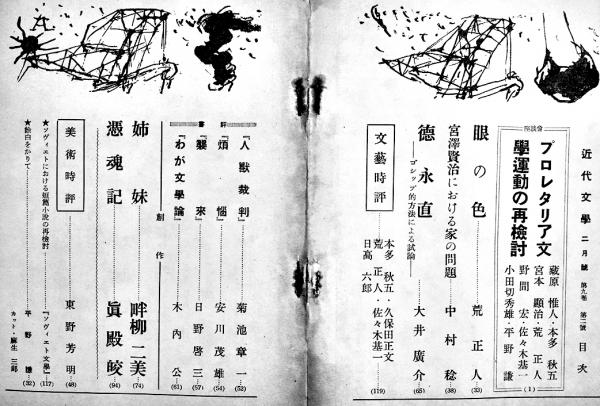 近代文學 二月號 第九卷 第二號 目次
座談會
プロレタリア文
學運動の再檢討
藏原惟人・本多秋五
宮本顯治・荒正人
野間宏・佐々木基一
小田切秀雄・平野謙
(1)
眼の色 荒正人 (33)
宮澤賢治における家の問題 中村稔 (38)
德永直 大井廣介 (65)
——ゴシップ的方法による試論——
文藝時評
本多秋五・久保田正文
荒正人・佐々木基一
日高六郎
(119)
書評
『人獸裁判』 菊池章一 (52)
『煩惱』 安川茂雄 (54)
『襲來』 日野啓三 (57)
『わが文學論』 木内公 (61)
創作
姉妹 畔柳二美 (74)
憑魂記 眞殿皎 (94)
美術時評 東野芳明 (48)
★ソヴィエトにおける短篇小説の再檢討 『ソヴィエト文學』 (117)
★餘白をかりて 平野謙 (32)
カット・麻生三郎